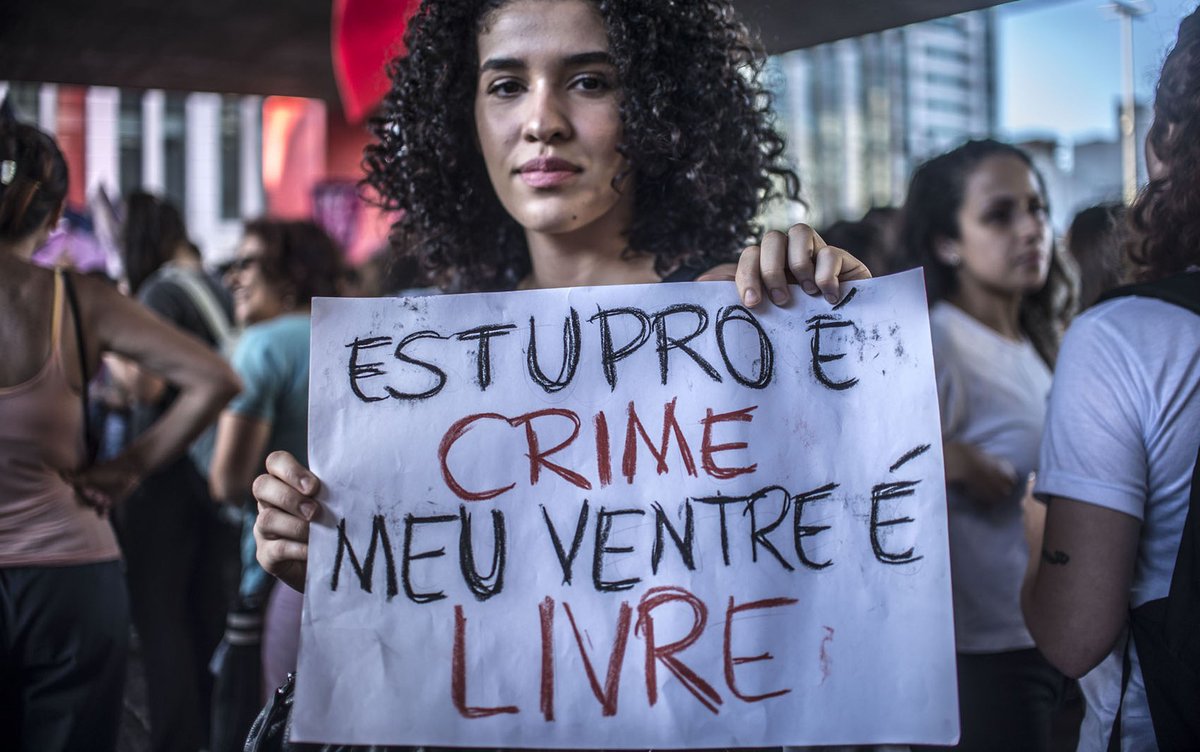 ESTUPRO É
CRIME
MEU VENTRE É
LIVRE